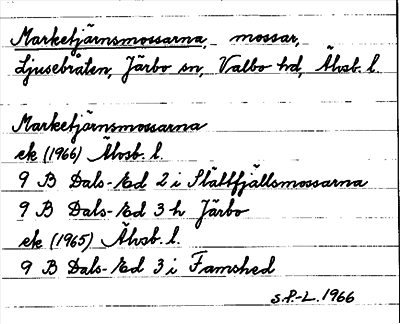 Marketjärnsmossarna, mossar,
Ljusebråten, Järbo sn, Valbo hd, Älvsb. l.
Marketjärnsmossarna
ek (1966) Älvsb. l.
9 B Dals-Ed 2 i Slättfjällsmossarna
9 B Dals-Ed 3 h Järbo
ek (1965) Älvsb. l.
9 B Dals-Ed 3 i Famshed
S.P.-L. 1966